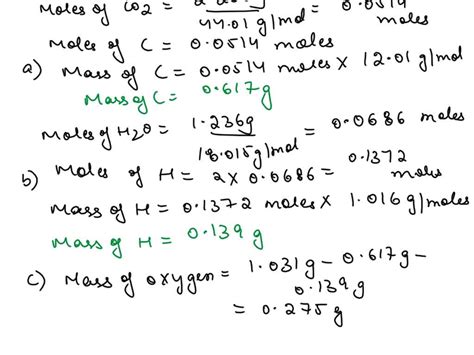 Moles of CO2 = = 0.0514
44.01 g/mol moles
Moles of C = 0.0514 moles
a) Mass of C = 0.0514 moles X 12.01 g/mol
Mass of C = 0.617g
Moles of H2O = 1.236g = 0.0686 moles
18.015g/mol
b) Moles of H = 2 x 0.0686 = 0.1372 moles
Mass of H = 0.1372 moles X 1.016 g/moles
Mass of H = 0.139 g
c) Mass of oxygen = 1.031g - 0.617g -
0.139 g
= 0.275 g